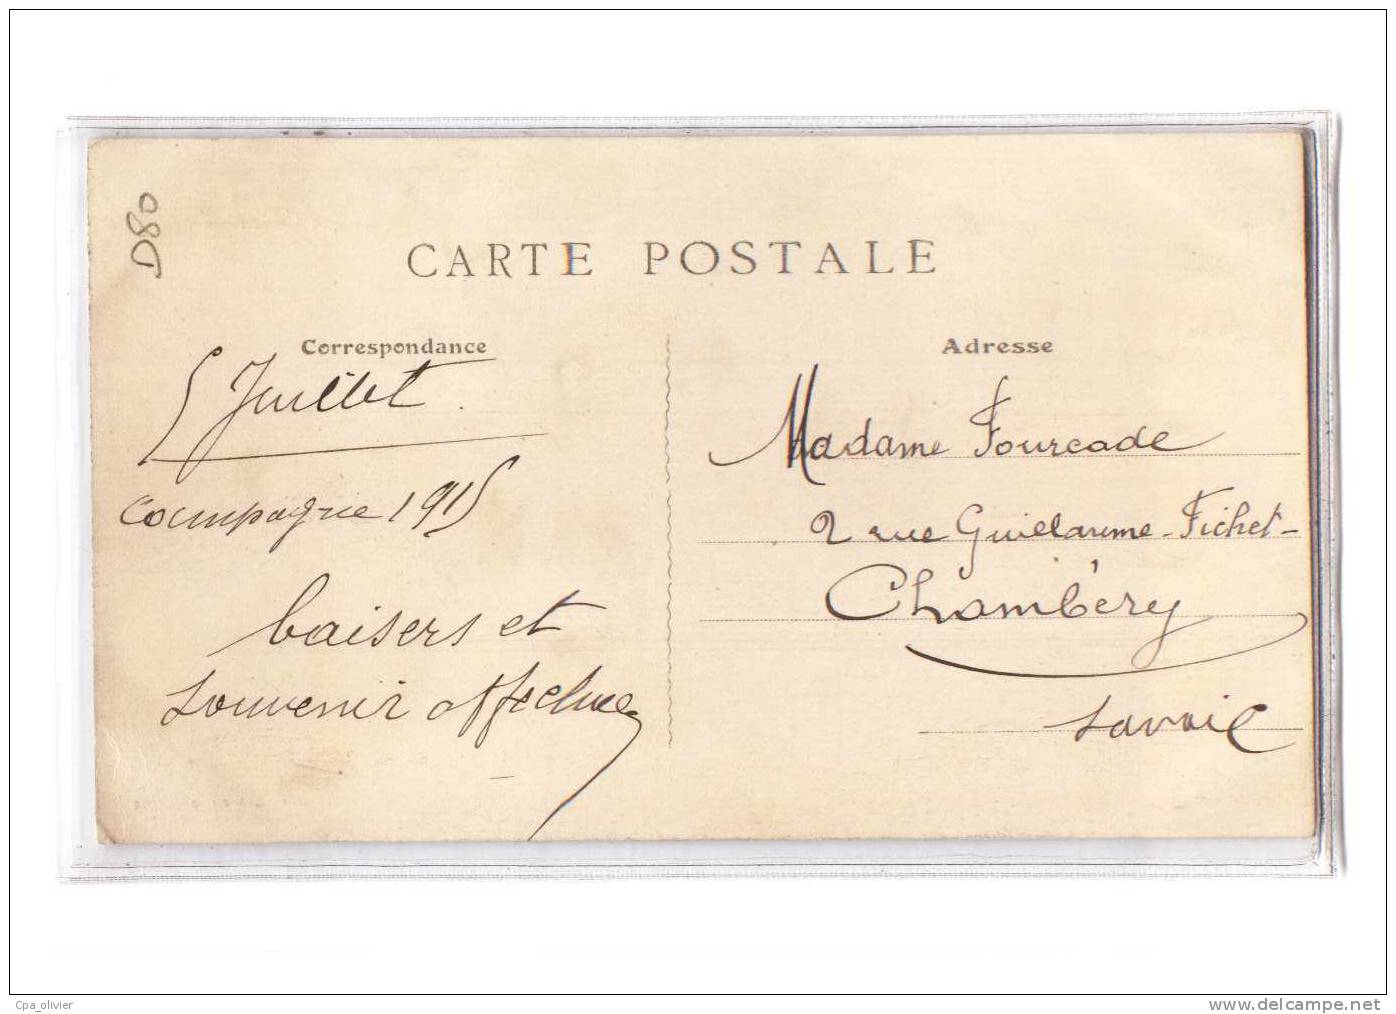 D80
CARTE POSTALE
Correspondance
5 Juillet
Campagne 1915
baisers et
souvenir affectueux
Adresse
Madame Fourcade
2 rue Guillaume-Fichet-
Chambéry
Savoie
Cpa_olivier
www.delcampe.net